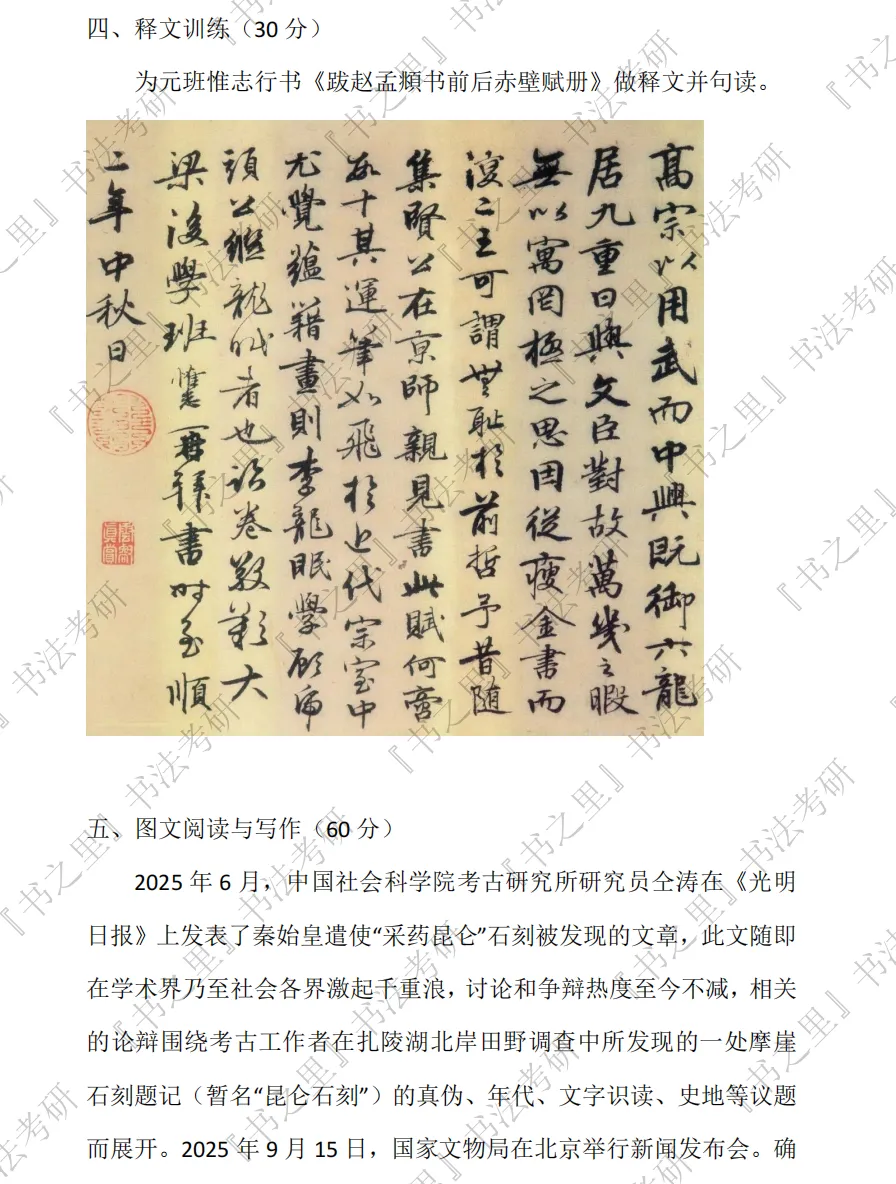 四、释文训练（30 分）
为元班惟志行书《跋赵孟頫书前后赤壁赋册》做释文并句读。
高宗以用武而中興既御六龍
居九重日與文臣對故萬幾之暇
無以寓罔極之思因從瘦金書而
復二王可謂無耻於前哲予昔随
集賢公在京師親見書此賦何啻
数十其運筆如飛於近代宗室中
尤覺蘊藉畫則李龍眠學顧虎
頭公繼龍眠者也卷敬歎大
梁後學班惟志再拜書时至順
二年中秋日
五、图文阅读与写作（60 分）
2025 年 6 月，中国社会科学院考古研究所研究员仝涛在《光明
日报》上发表了秦始皇遣使“采药昆仑”石刻被发现的文章，此文随即
在学术界乃至社会各界激起千重浪，讨论和争辩热度至今不减，相关
的论辩围绕考古工作者在扎陵湖北岸田野调查中所发现的一处摩崖
石刻题记（暂名“昆仑石刻”）的真伪、年代、文字识读、史地等议题
而展开。2025 年 9 月 15 日，国家文物局在北京举行新闻发布会。确
『书之里』书法考研